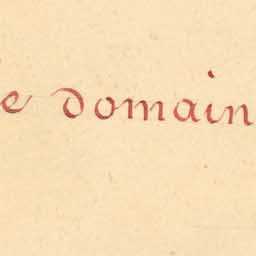 e domain